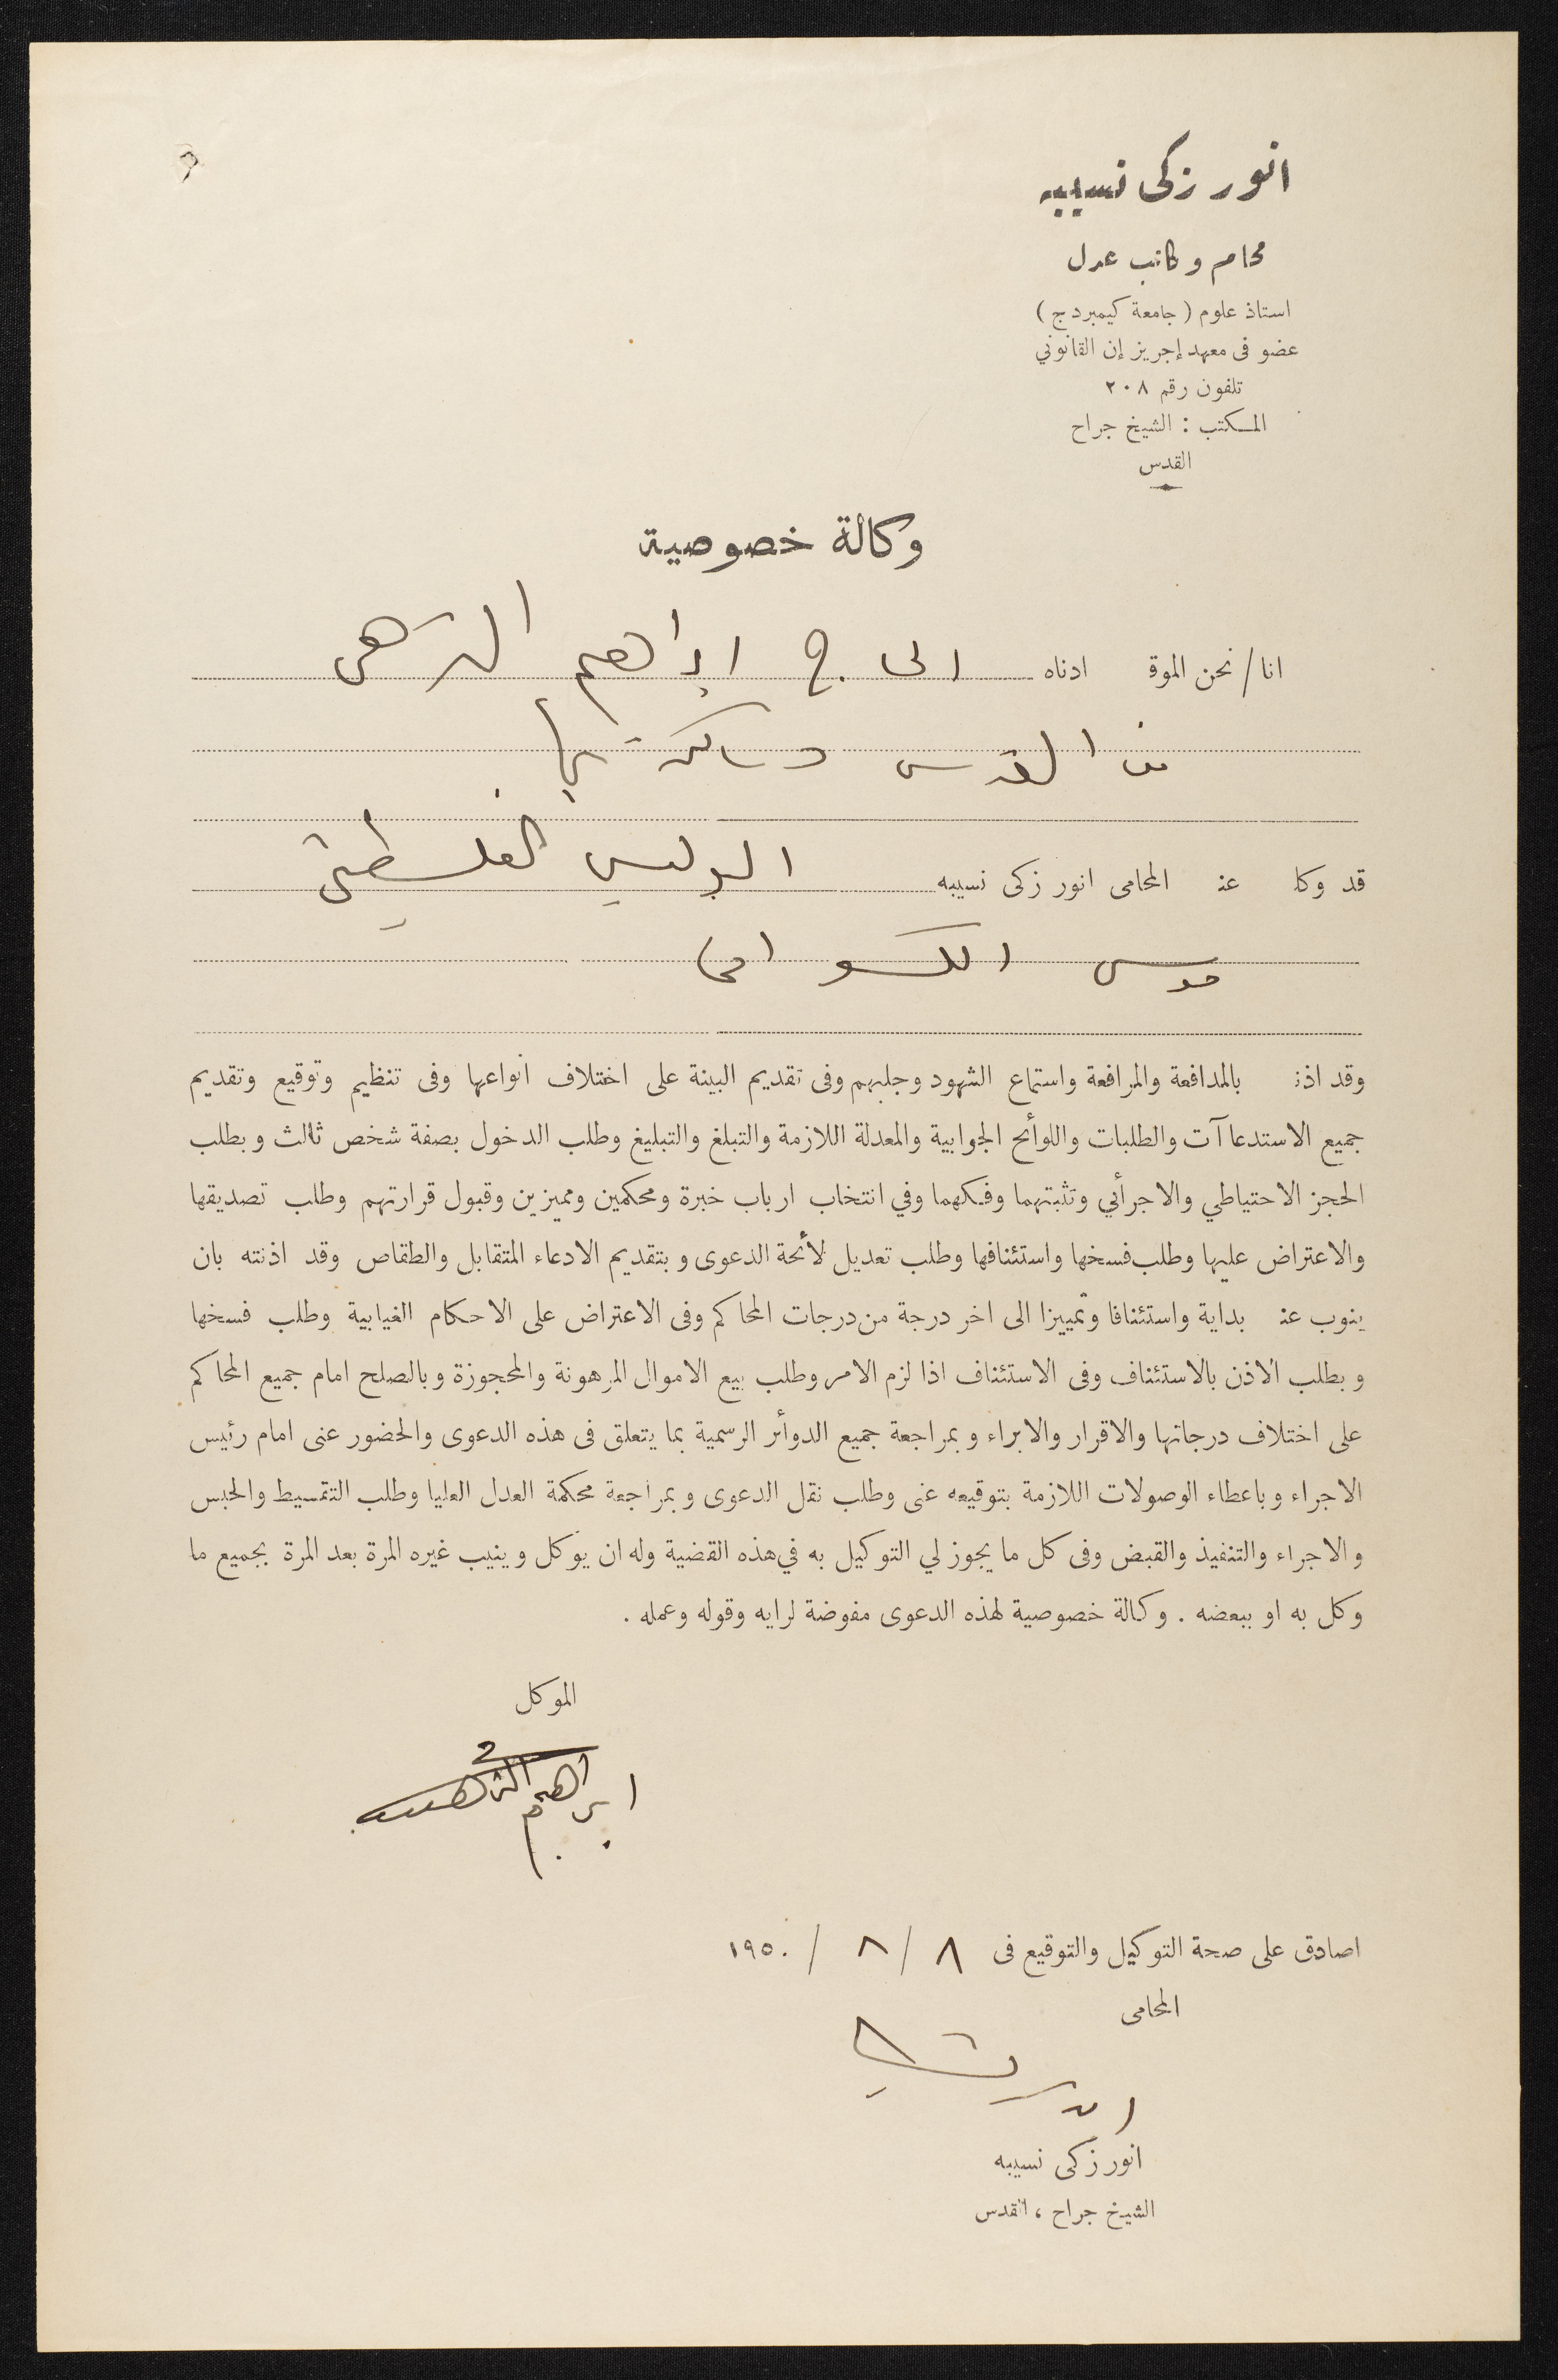 انور زكى نسيبه
محام وكاتب عدل
استاذ علوم (جامعة كيمبردج)
عضو فى معهد إجريز إن القانوني
تلفون رقم ٢٠٨
المكتب : الشيخ جراح
القدس
وكالة خصوصية
انا/نحن الموقع ادناه الحاج ابراهيم الترهى
من القدس وساكن بها
قد وكلـ عنـ المحامى انور زكى نسيبه البوليس الفلسطينى
موسى
وقد اذنـ بالمدافعة والمرافعة واستماع الشهود وجلبهم وفى تقديم البينة على اختلاف انواعها وفى تنظيم وتوقيع وتقديم
جميع الاستدعاآت والطلبات واللوأئح الجوابية والمعدلة اللازمة والتبلغ والتبليغ وطلب الدخول بصفة شخص ثالث وبطلب
الحجز الاحتياطي والاجرأئي وتثبتهما وفكهما وفي انتخاب ارباب خبرة ومحكمين ومميزين وقبول قرارتهم وطلب تصديقها
والاعتراض عليها وطلب فسخها واستئنافها وطلب تعديل لأئحة الدعوى وبتقديم الادعاء المتقابل والطقاص وقد اذنته بان
ينوب عنـ بداية واستئنافا وتمييزا الى اخر درجة من درجات المحاكم وفى الاعتراض على الاحكام الغيابية وطلب فسخها
وبطلب الاذن بالاستئناف وفى الاستئناف اذا لزم الامر وطلب بيع الاموال المرهونة والمحجوزة وبالصلح امام جميع المحاكم
على اختلاف درجاتها والاقرار والابراء وبمراجعة جميع الدوأئر الرسمية بما يتعلق فى هذه الدعوى والحضور عنى امام رئيس
الاجراء وباعطاء الوصولات اللازمة بتوقيعه عنى وطلب نقل الدعوى وبمراجعة محكمة العدل العليا وطلب التقسيط والحبس
والاجراء والتنفيذ والقبض وفى كل ما يجوز لي التوكيل به في هذه القضية وله ان يوكل وينيب غيره المرة بعد المرة بجميع ما
وكل به او ببعضه . وكالة خصوصية لهذه الدعوى مفوضة لرايه وقوله وعمله .
الموكل
ابراهيم
اصادق على صحة التوكيل والتوقيع فى ٨ / ٨ / ١٩٥٠
المحامى
انور زكى نسيبه
الشيخ جراح ، القدس